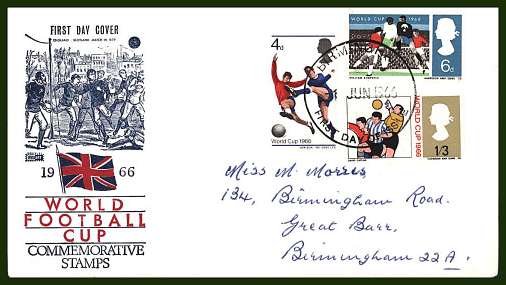 FIRST DAY COVER
1966
WORLD
FOOTBALL
CUP
COMMEMORATIVE
STAMPS
4d
World Cup 1966
WORLD CUP 1966
6d
WORLD CUP 1966
1/3
JUN 1966
FIRST DAY
Miss M. Morris
134, Birmingham Road.
Great Barr,
Birmingham 22A.